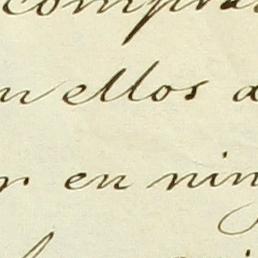 compra
n ellos a
r en nin